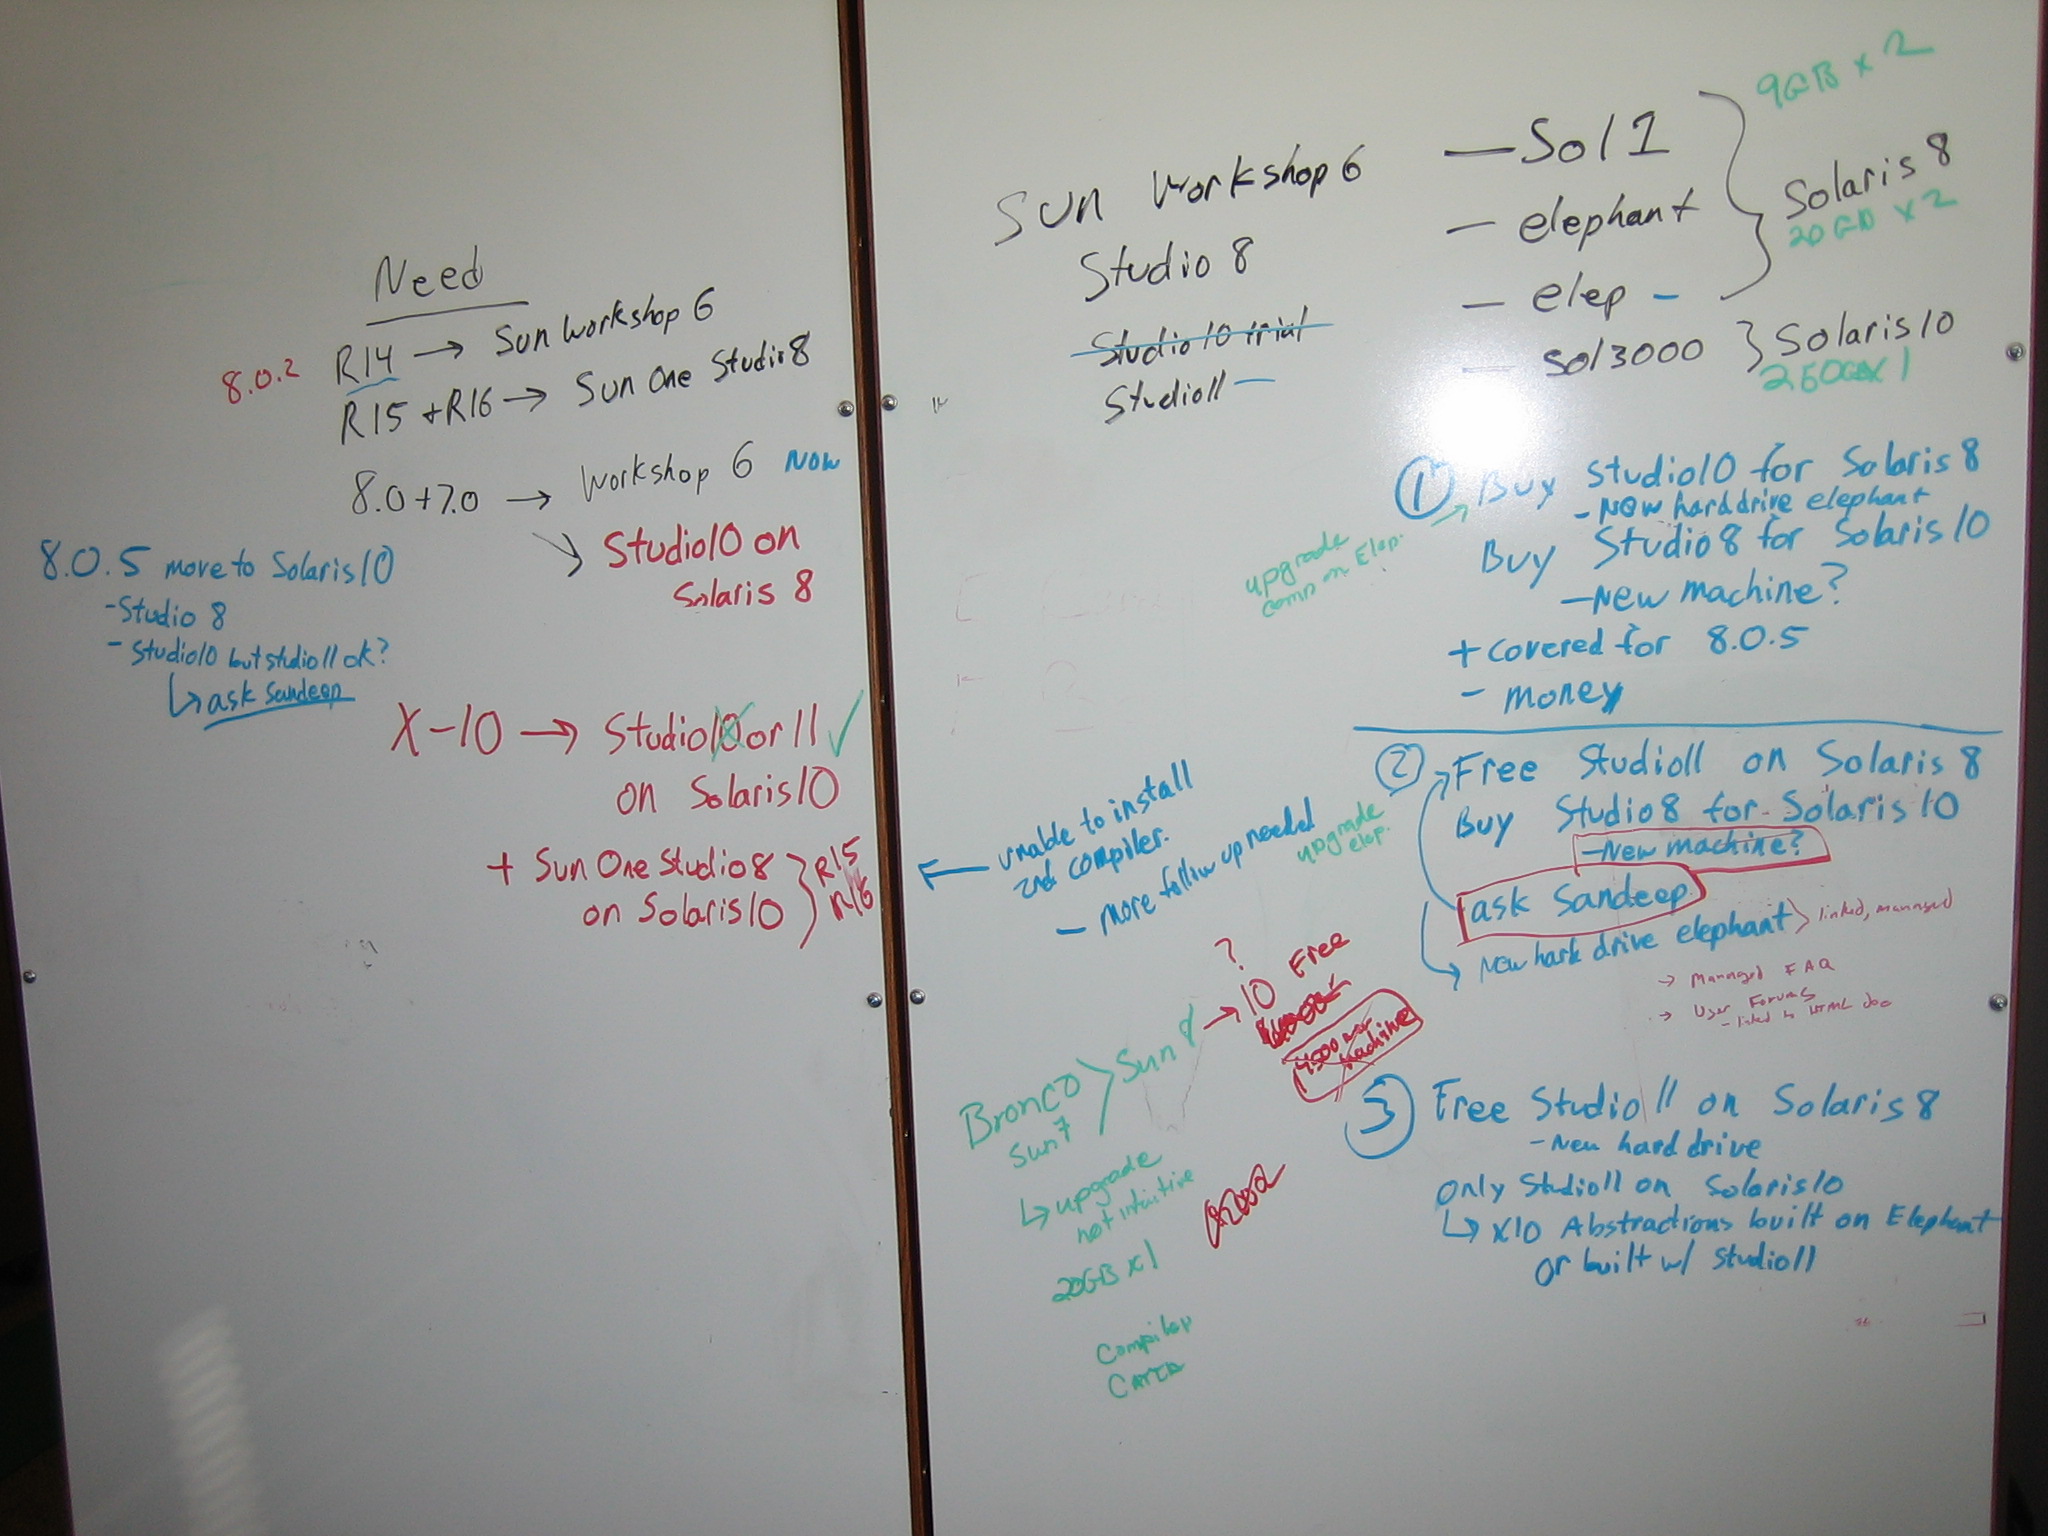 Need
8.0.2 R14 → Sun Workshop 6
R15 + R16 → Sun One Studio 8
8.0 + 7.0 → Workshop 6 NOW
Studio10 on
Solaris 8
8.0.5 move to Solaris10
- Studio 8
- Studio10 but studio11 ok?
ask Sandeep
X-10 → Studio10 or 11 ✓
on Solaris10
+ Sun One Studio8
on Solaris10
R15
R16
Sun Workshop 6
Studio 8
Studio10 trial
Studio11 -
9GB x 2
- Sol1
- elephant
- elep -
Solaris 8
20GB x 2
- Sol3000 } Solaris10
250GB x 1
upgrade
comp on Elep.
① Buy Studio10 for Solaris 8
- New harddrive elephant
Buy Studio8 for Solaris 10
- New machine?
+ covered for 8.0.5
- money
② Free Studio11 on Solaris 8
Buy Studio8 for Solaris 10
- New machine?
ask Sandeep
New hark drive elephant
linked, managed
→ Managed FAQ
→ User Forums
- linked to HTML doc
← unable to install
2nd compiler.
- More follow up needed
upgrade
elep.
③ Free Studio11 on Solaris 8
- New hard drive
only Studio11 on Solaris10
↳ X10 Abstractions built on Elephant
or built w/ Studio11
?
10 Free
machine
Bronco
Sun7
Sun 8 →
↳ upgrade
not intuitive
20GB x 1